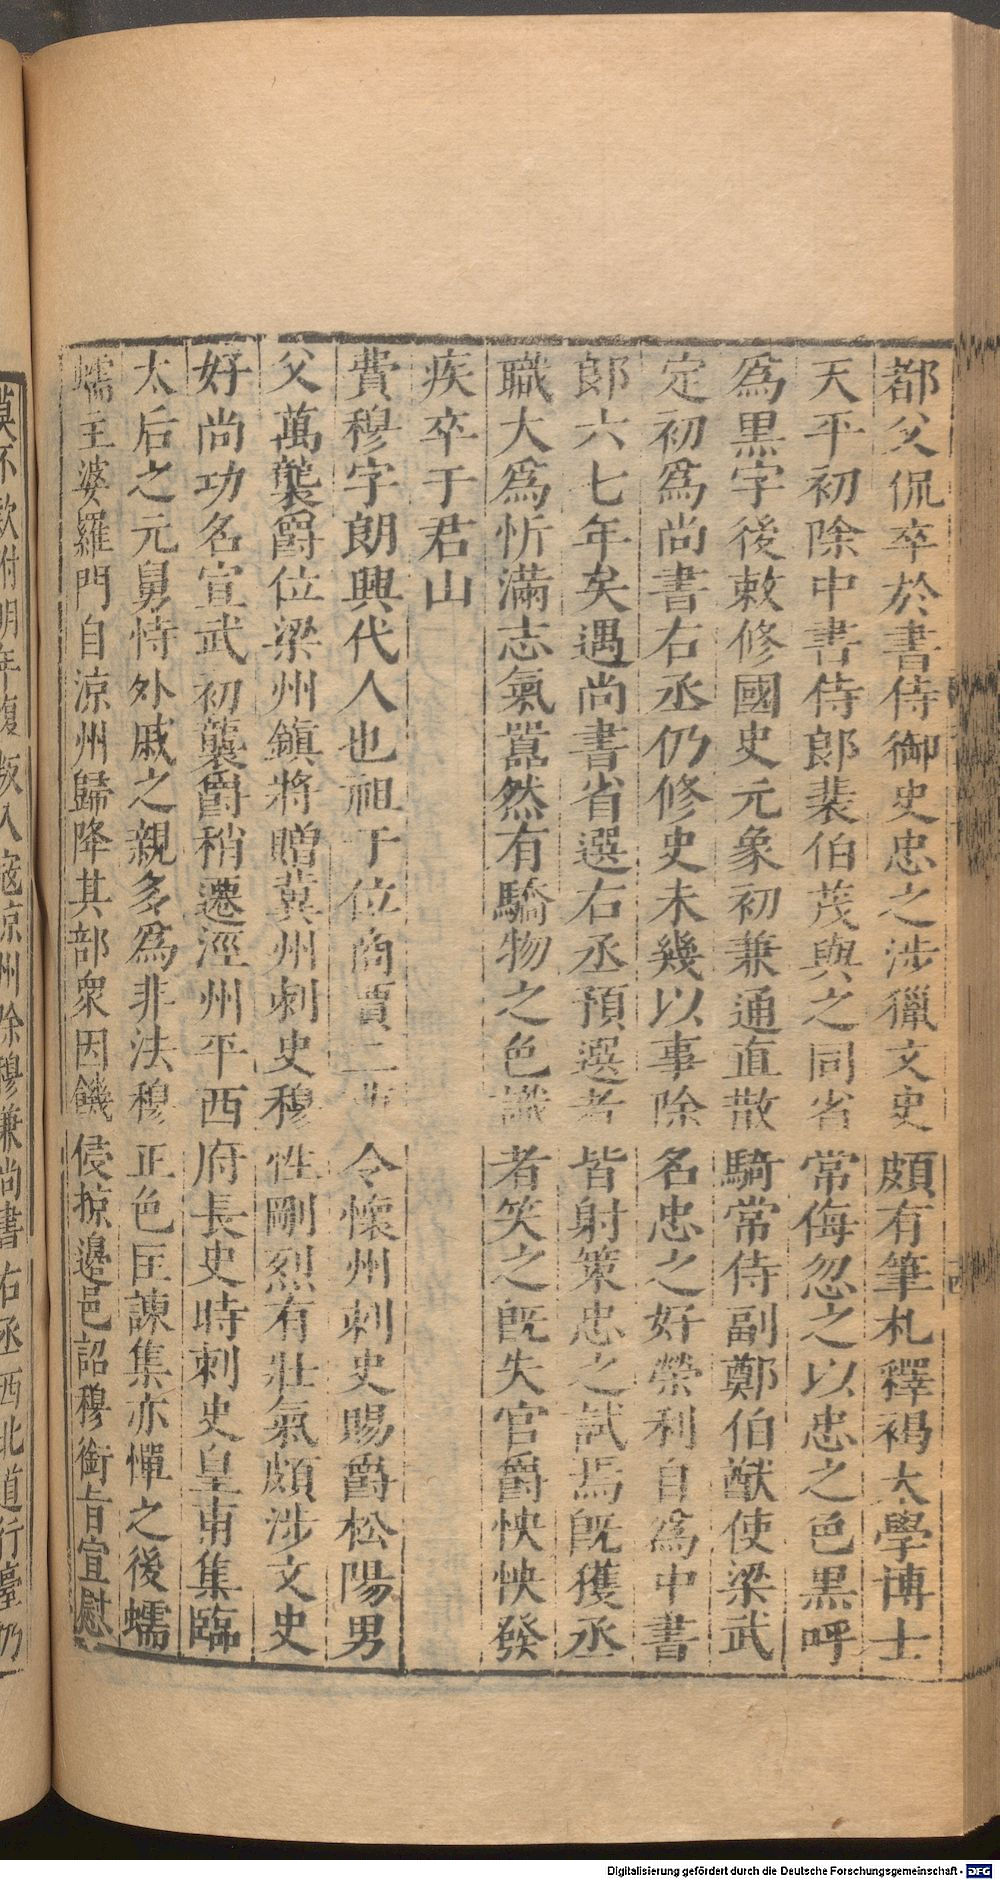 都父侃卒於書侍御史忠之涉獵文史頗有筆札釋褐太學博士
天平初除中書侍郎裴伯茂與之同省常侮忽之以忠之色黑呼
為黑字後敕修國史元象初兼通直散騎常侍副鄭伯猷使梁武
定初為尚書右丞仍修史未幾以事除名忠之好榮利自為中書
郎六七年矣遇尚書省選右丞預選者皆射策忠之試焉既獲丞
職大為忻滿志氣囂然有驕物之色識者笑之既失官爵怏怏發
疾卒于君山
費穆字朗興代人也祖于位商賈二曹令懷州刺史賜爵松陽男
父萬襲爵位梁州鎮將贈冀州刺史穆性剛烈有壯氣頗涉文史
好尚功名宣武初襲爵稍遷涇州平西府長史時刺史皇甫集臨
太后之元舅恃外戚之親多為非法穆正色匡諫集亦憚之後蠕
蠕主婆羅門自涼州歸降其部衆因饑侵掠邊邑詔穆銜旨宣慰
莫不款附明年復叛入寇涼州除穆兼尚書右丞西北道行臺仍
Digitalisierung gefördert durch die Deutsche Forschungsgemeinschaft - DFG